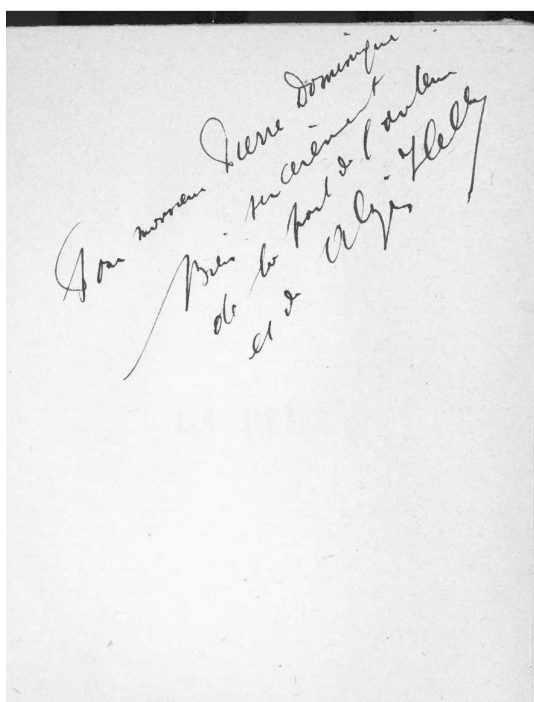 Pour monsieur Pierre Dominique
Bien sincèrement
de la part de l'auteur
et de Alzir Hella
LA PEUR